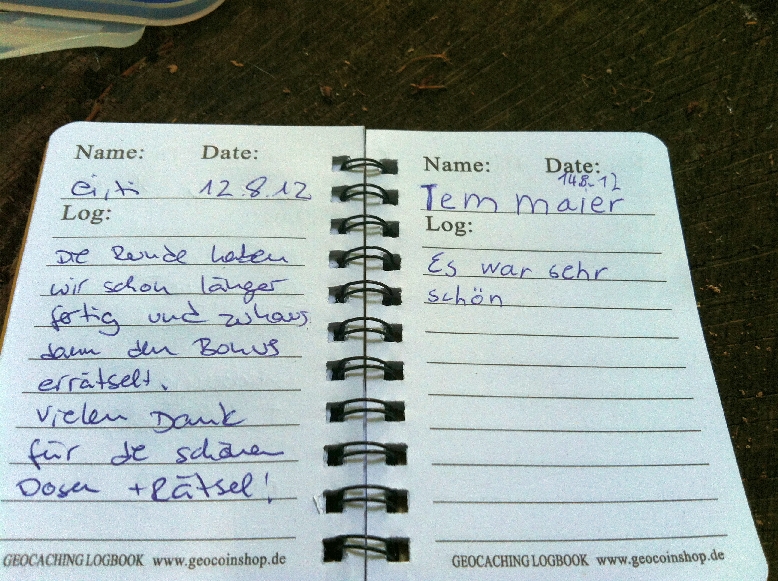 Name: Date:
12.8.12
Log:
Die Runde haben
wir schon länger
fertig und zuhaus
dann den Bonus
errätselt.
Vielen Dank
für die schönen
Dosen + Rätsel!
GEOCACHING LOGBOOK www.geocoinshop.de
Name: Date:
14.8.12
Tem maier
Log:
Es war sehr
schön
GEOCACHING LOGBOOK www.geocoinshop.de